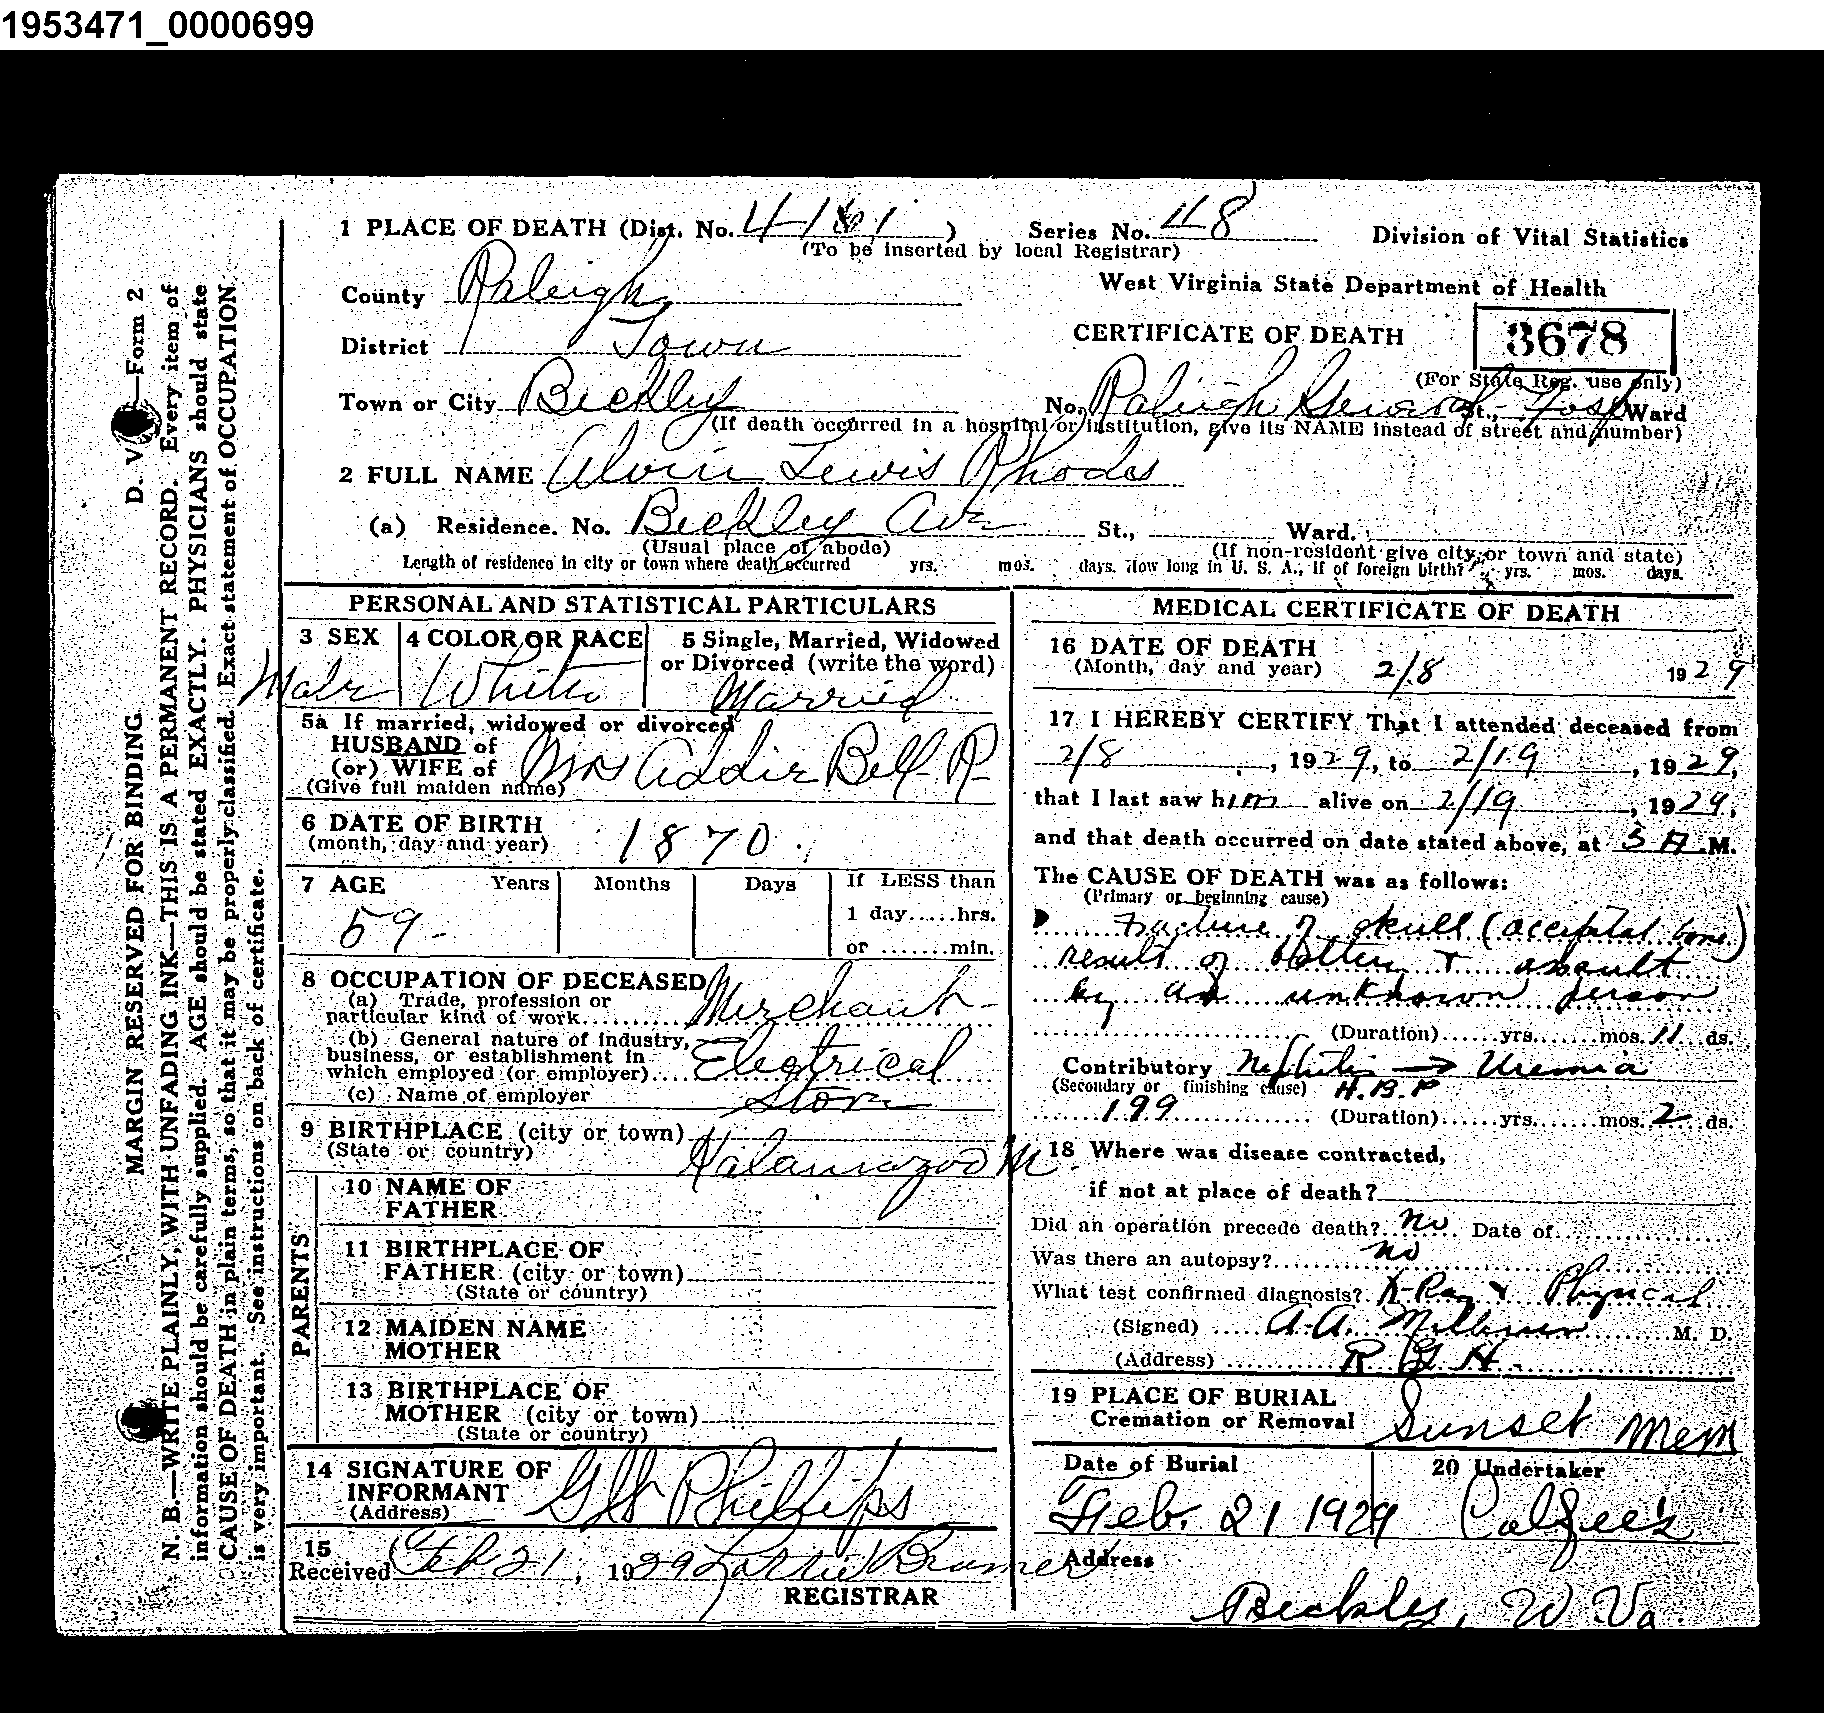 1953471_0000699
1 PLACE OF DEATH (Dist. No. 4161 ) Series No. 48 Division of Vital Statistics
(To be inserted by local Registrar)
County Raleigh West Virginia State Department of Health
District Town CERTIFICATE OF DEATH 3678
(For State Reg. use only)
Town or City Beckley No. Raleigh General Hosp St., Ward
(If death occurred in a hospital or institution, give its NAME instead of street and number)
2 FULL NAME Alvin Lewis Rhodes
(a) Residence. No. Beckley Ave St., Ward.
(Usual place of abode) (If non-resident give city or town and state)
Length of residence in city or town where death occurred yrs. mos. days. How long in U. S. A., if of foreign birth? yrs. mos. days.
PERSONAL AND STATISTICAL PARTICULARS
3 SEX 4 COLOR OR RACE 5 Single, Married, Widowed
or Divorced (write the word)
Male White Married
5a If married, widowed or divorced
HUSBAND of
(or) WIFE of Mrs Addie Bell R
(Give full maiden name)
6 DATE OF BIRTH 1870
(month, day and year)
7 AGE Years Months Days If LESS than
59 1 day.....hrs.
or .......min.
8 OCCUPATION OF DECEASED
(a) Trade, profession or
particular kind of work Merchant
(b) General nature of industry,
business, or establishment in
which employed (or employer) Electrical
(c) Name of employer Store
9 BIRTHPLACE (city or town)
(State or country) Kalamazoo M
PARENTS
10 NAME OF
FATHER
11 BIRTHPLACE OF
FATHER (city or town)
(State or country)
12 MAIDEN NAME
MOTHER
13 BIRTHPLACE OF
MOTHER (city or town)
(State or country)
14 SIGNATURE OF
INFORMANT Phillips
(Address)
15
Received Feb 21, 1929
REGISTRAR
MEDICAL CERTIFICATE OF DEATH
16 DATE OF DEATH
(Month, day and year) 2/8 1929
17 I HEREBY CERTIFY That I attended deceased from
2/8, 1929, to 2/19, 1929,
that I last saw him alive on 2/19, 1929,
and that death occurred on date stated above, at 3 A.M.
The CAUSE OF DEATH was as follows:
(Primary or beginning cause)
Fracture of skull (occipital bone)
result of battery & assault
by an unknown person
(Duration)......yrs.......mos. 11 ds.
Contributory Nephritis → Uremia
(Secondary or finishing cause) H.B.P
199 (Duration)......yrs.......mos. 2 ds.
18 Where was disease contracted,
if not at place of death?
Did an operation precede death? no Date of
Was there an autopsy? no
What test confirmed diagnosis? X-Ray & Physical
(Signed) A.A. M. D.
(Address) R G H.
19 PLACE OF BURIAL
Cremation or Removal Sunset Mem
Date of Burial 20 Undertaker
Feb. 21 1929
Address
Beckley, W Va.
MARGIN RESERVED FOR BINDING. D. V. —Form 2
N. B.—WRITE PLAINLY, WITH UNFADING INK—THIS IS A PERMANENT RECORD. Every item of
information should be carefully supplied. AGE should be stated EXACTLY. PHYSICIANS should state
CAUSE OF DEATH in plain terms, so that it may be properly classified. Exact statement of OCCUPATION
is very important. See instructions on back of certificate.